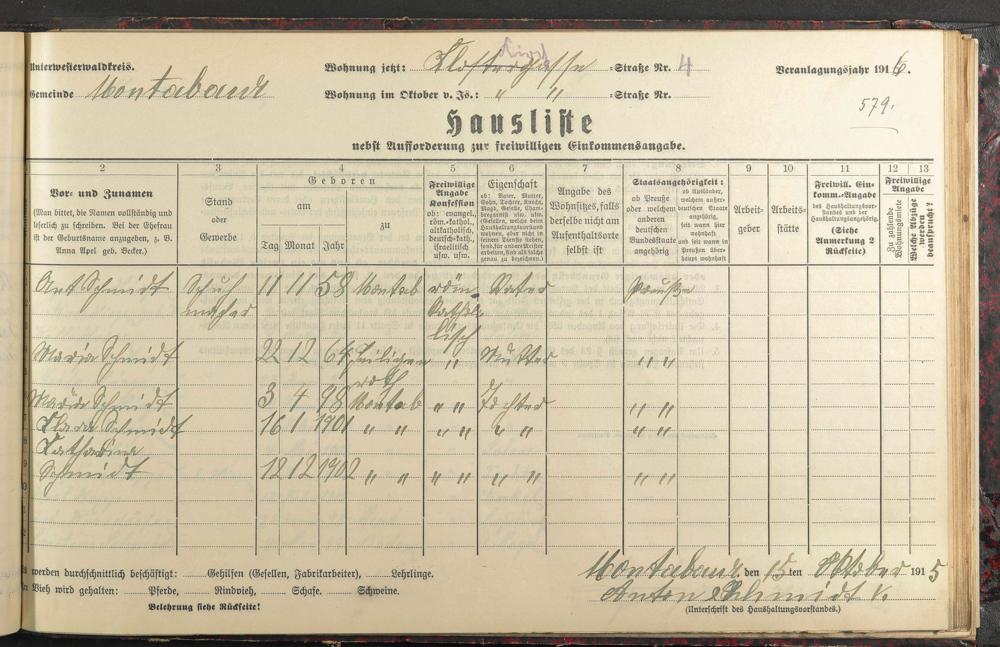 Unterwesterwaldkreis.
Wohnung jetzt: Klostergasse =Straße Nr. 4
Veranlagungsjahr 1916.
Gemeinde Montabaur
Wohnung im Oktober v. Js.: " " =Straße Nr.
579.
Hausliste
nebst Aufforderung zur freiwilligen Einkommensangabe.
2 3 4 5 6 7 8 9 10 11 12 13
Vor- und Zunamen
(Man bittet, die Namen vollständig und
leserlich zu schreiben. Bei der Ehefrau
ist der Geburtsname anzugeben, z. B.
Anna Apel geb. Becker.)
Stand
oder
Gewerbe
Geboren
am
zu
Tag Monat Jahr
Freiwillige
Angabe
Konfession
ob: evangel.,
röm.-kathol.,
altkatholisch,
deutsch-kath.,
israelitisch
usw. usw.
Eigenschaft
ob: Vater, Mutter,
Sohn, Tochter, Knecht,
Magd, Geselle, Cham-
bregarnist usw. usw.
(Gesellen, welche beim
Haushaltungsvorstand
wohnen, aber nicht in
seinem Dienste stehen,
sond. für andere Meister
arbeiten, sind als solche
genau zu bezeichnen.)
Angabe des
Wohnsitzes, falls
derselbe nicht am
Aufenthaltsorte
selbst ist
Staatsangehörigkeit:
ob Preuße
oder welchem
anderen
deutschen
Bundesstaate
angehörig
ob Ausländer,
welchem außer-
deutschen Staate
angehörig,
seit wann hier
wohnhaft
und seit wann in
Preußen über-
haupt wohnhaft
Arbeit-
geber
Arbeits-
stätte
Freiwill. Ein-
komm.-Angabe
des Haushaltungsvor-
standes und der
Haushaltungsangehörig.
(Siehe
Anmerkung 2
Rückseite)
Freiwillige
Angabe
Zu zahlende
Wohnungsmiete
Welche Abzüge
werden
beansprucht?
Ant Schmidt Schuh 11 11 58 Montab röm Vater Preuße
macher katho
lisch
Maria Schmidt 22 12 64 Heiligen " Mutter " "
roth
Maria Schmidt 3 4 98 Montab " " Tochter " "
Klara Schmidt 16 1 1901 " " " " " " " "
Katharina
Schmidt 18 12 1902 " " " " " " " "
werden durchschnittlich beschäftigt: Gehilfen (Gesellen, Fabrikarbeiter), Lehrlinge.
Vieh wird gehalten: Pferde, Rindvieh, Schafe, Schweine.
Belehrung siehe Rückseite!
Montabaur, den 15 ten Oktober 1915
Anton Schmidt V.
(Unterschrift des Haushaltungsvorstandes.)